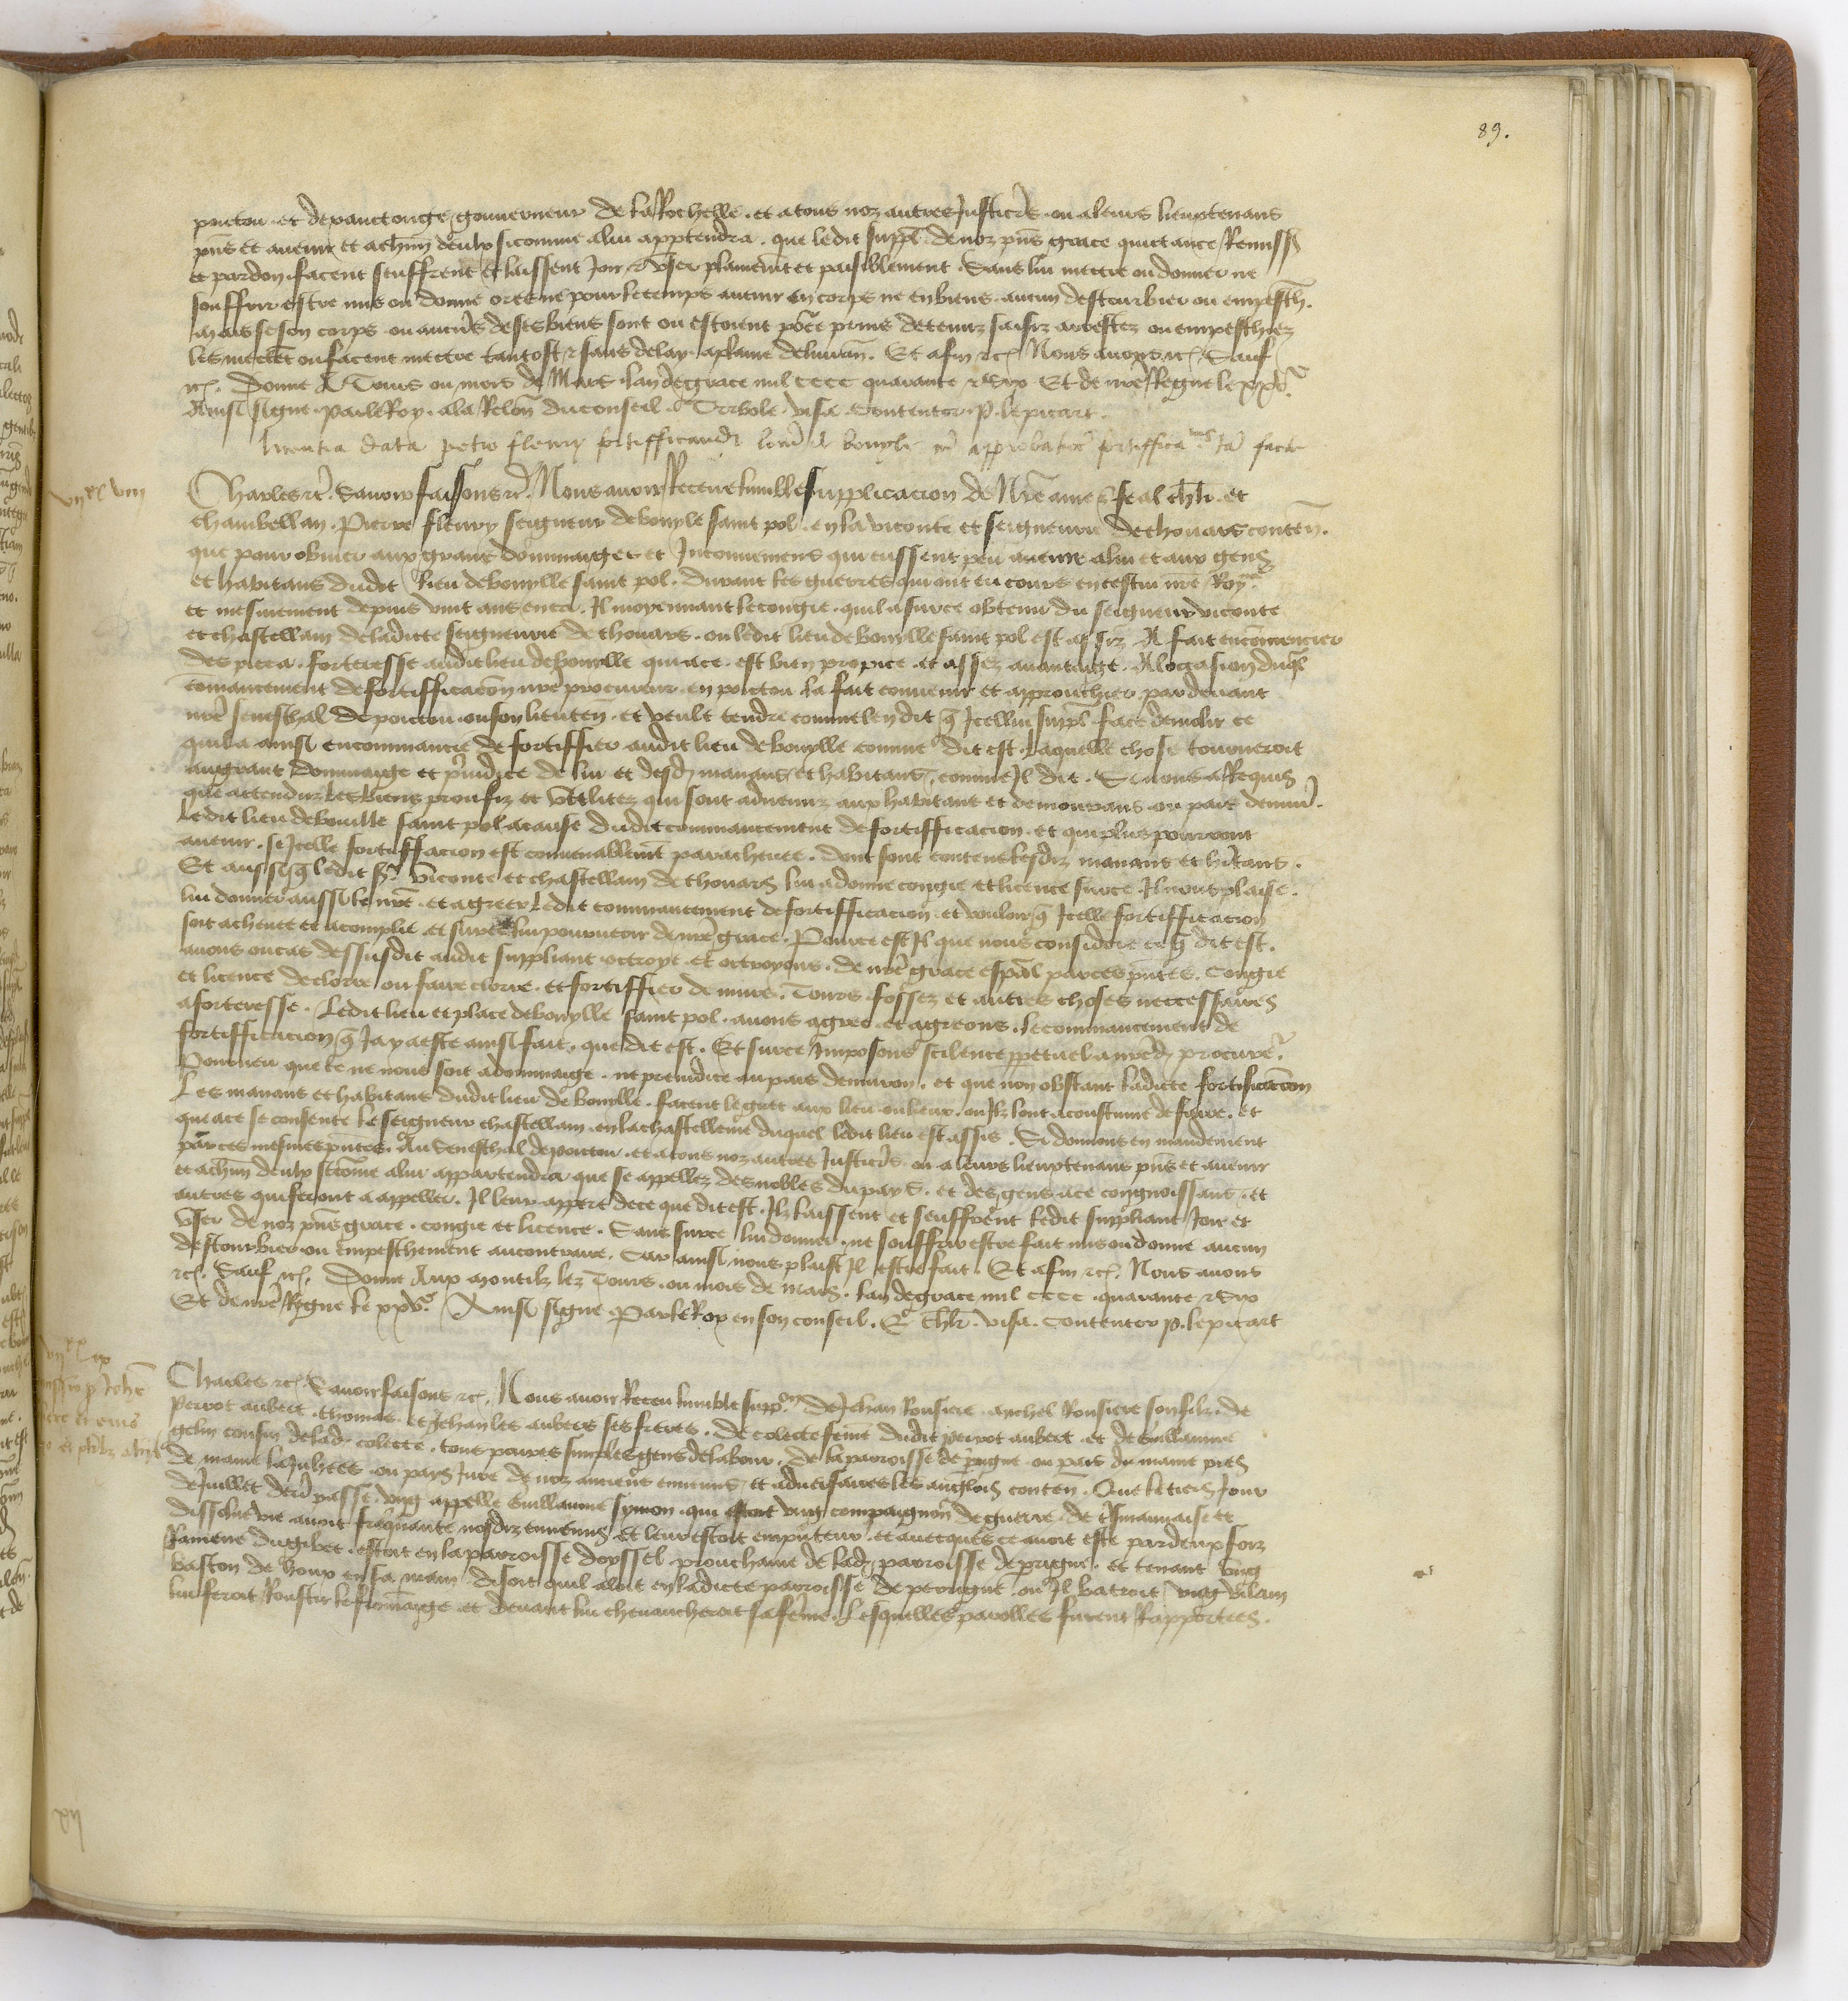 89.
poictou et de xanctonge gouverneur de la Rochelle et a tous noz autres Justiciers ou a leurs lieuxtenans
pns et avenir et a chun deulx si comme a lui apptendra que ledit suppl de noz pns grace quictance Remiss
et pardon facent seuffrent et laissent Joir et User plainemt et paisiblement Sans lui mectre ou donner ne
souffrir estre mis ou donne ores ne pour le temps avenir en corps ne en biens aucun destourbier ou empesch.
Mais se son corps ou aucuns de ses biens sont ou estoient pour ce prins detenuz saisiz arrestez ou empeschez
les mectent ou facent mectre tantost et sans delay a plaine delivran. Et afin etc Nous avons etc Sauf
etc. Donne A Tours ou mois de Mars lan de grace mil cccc quarante et Six Et de nre Regne le xxve.
Ainsi signe par le Roy a la Relon du conseil Visa Contentor P. le picart.
licentia data petro fleury fortifficandi locum de bouylle approbation fortiffica facte
viixx viii
Charles etc. Savoir faisons etc. Nous avoir Receue lumble supplicacion de Nre ame et feal chlr et
chambellan Pierre fleury seigneur de bouylle saint pol en la viconte et seigneurie de thouars conten.
que pour obvier aux grans dommaiges et Inconveniens qui eussent peu avenir a lui et aux gens
et habitans dudit lieu de bouylle saint pol durant les guerres qui ont eu cours en cestui nre Roye
et mesmement depuis vint ans en ca Il moyennant le congie quil a sur ce obtenu du seigneur viconte
et chastellain de ladicte seigneurie de thouars ou ledit lieu de bouylle saint pol est assiz A fait encommencier
des pieca forteresse audit lieu de bouylle qui a ce est bien propice et assez avantaige A loccasion duql
comancement de fortifficacon nre procureur en poictou la fait convenir et approucher par devant
nre seneschal de poictou ou son lieuten et veult tendre comme len dit q Icellui suppl face demolir ce
quil a ainsi encommancie de fortiffier audit lieu de bouylle comme dit est laquelle chose tourneroit
au grant dommaige et preiudice de lui et desd manans et habitans comme Il dit Si nous a Requis
que attenduz les biens proufiz et utilitez qui sont advenuz aux habitans et demourans ou pais denviron
ledit lieu de bouille saint pol a cause dudit commancement de fortifficacion et qui plus pourront
avenir se Icelle fortifficacion est convenablemt parachevee dont sont contens lesdiz manans et hitans.
Et aussi q ledit sr viconte et chastellain de thouars lui a donne congie et licence sur ce Il nous plaise
lui donner aussi le nre et agreer ledit commancement de fortifficacion et vouloir q Icelle fortifficacion
soit achevee et acomplie et sur ce lui pourveoir de nre grace Pour ce est Il que nous considere ce q dit est.
avons ou cas dessusdit audit suppliant octroye et octroyons de nre grace espal par ces pntes congie
et licence de clorre ou faire clorre et fortiffier de murs Tours fossez et autres choses neccessaires
a forteresse ledit lieu et place de bouylle saint pol avons agree et agreons le commancement de
fortifficacion q Ja y a este ainsi fait que dit est Et sur ce Imposons scilence ppetuel a nred procureur
Pourveu que ce ne nous soit a dommaige ne preiudice au pais denviron et que non obstant ladicte fortificacion
Les manans et habitans dudit lieu de bouylle facent le guet aux lieu ou lieux ou Ilz lont acoustume de faire et
que a ce se consente le seigneur chastellain en la chastellenie duquel ledit lieu est assis Si donnons en mandement
par ces mesmes pntes Au Seneschal de poictou et a tous noz autres Justiciers ou a leurs lieuxtenans pns et avenir
et a chun deulx si come a lui appartendra que se appellez des nobles du pays et des gens a ce congnoissans et
autres qui feront a appeller Il leur appert de ce que dit est Ilz laissent et seuffrent ledit suppliant Joir et
User de noz pns grace congie et licence Sans sur ce lui donner ne souffrir estre fait mis ou donne aucun
destourbier ou empeschement au contraire Car ainsi nous plaist Il estre fait Et afin etc. Nous avons
etc. Sauf etc. Donne Aux Montilz lez Tours ou mois de Mars lan de grace mil cccc quarante et Six
Et de nre Regne le xxve. Ainsi signe Par le Roy en son conseil E chlr Visa Contentor P. le picart
viixx ix
Charles etc. Savoir faisons etc. Nous avoir Receu lumble suppon de Jehan Rousiere Michel Rousiere son filz de
perrot aubert thomas et Jehan les aubers ses freres De colecte feme dudit perrot aubert et de Guillaume
gelin cousin de lad colecte tous povres simples gens de labour de la parroisse de prigne ou pais du maine pres
de maine la Juhees ou pays Jure de noz anciens ennemis et adversaires les anglois conten Que le tiers Jour
de Juillet derr passe ung appelle Guillaume symon qui estoit ung compaignon de guerre de tresmauvaise et
dissolue vie avoit frequente nosdiz ennemis et leur estoit empireur et avecques ce avoit este par deux foiz
Ramene du gibet estoit en la parroisse doyssel prouchaine de lad parroisse de prigne et tenant ung
baston de houx en sa main disoit quil aloit en ladicte parroisse de perrigne ou Il batroit ung vilain
lui feroit Roustir le fromaige et devant lui chevaucheroit sa feme Lesquelles parolles furent Rapportees.
xii